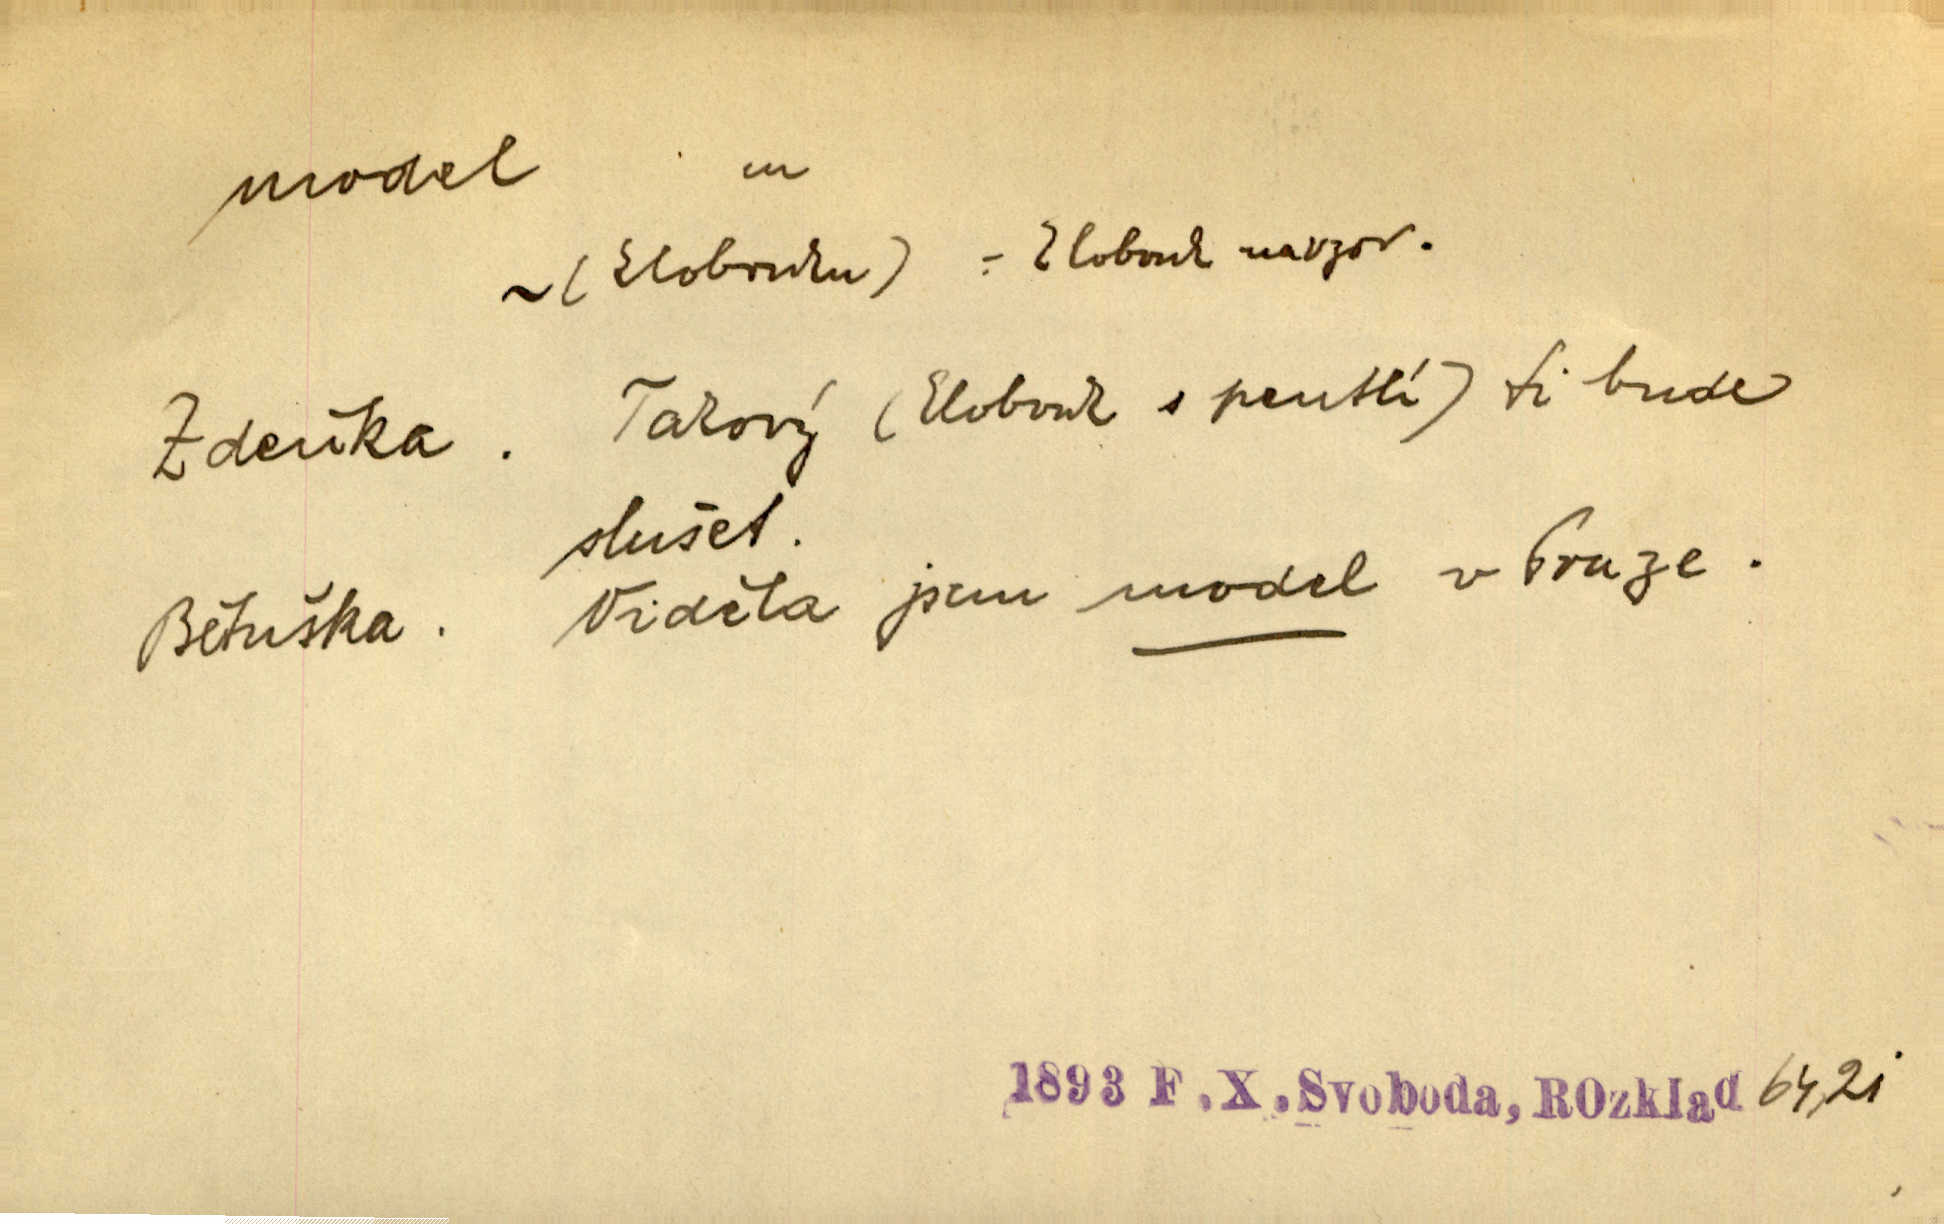 model m
~ (klobouku) = klobouk navzor.
Zdeňka. Takový (klobouk s pentlí) ti bude
slušet.
Bětuška. Viděla jsem model v Praze.
1893 F.X.Svoboda, ROzklad 64,2i